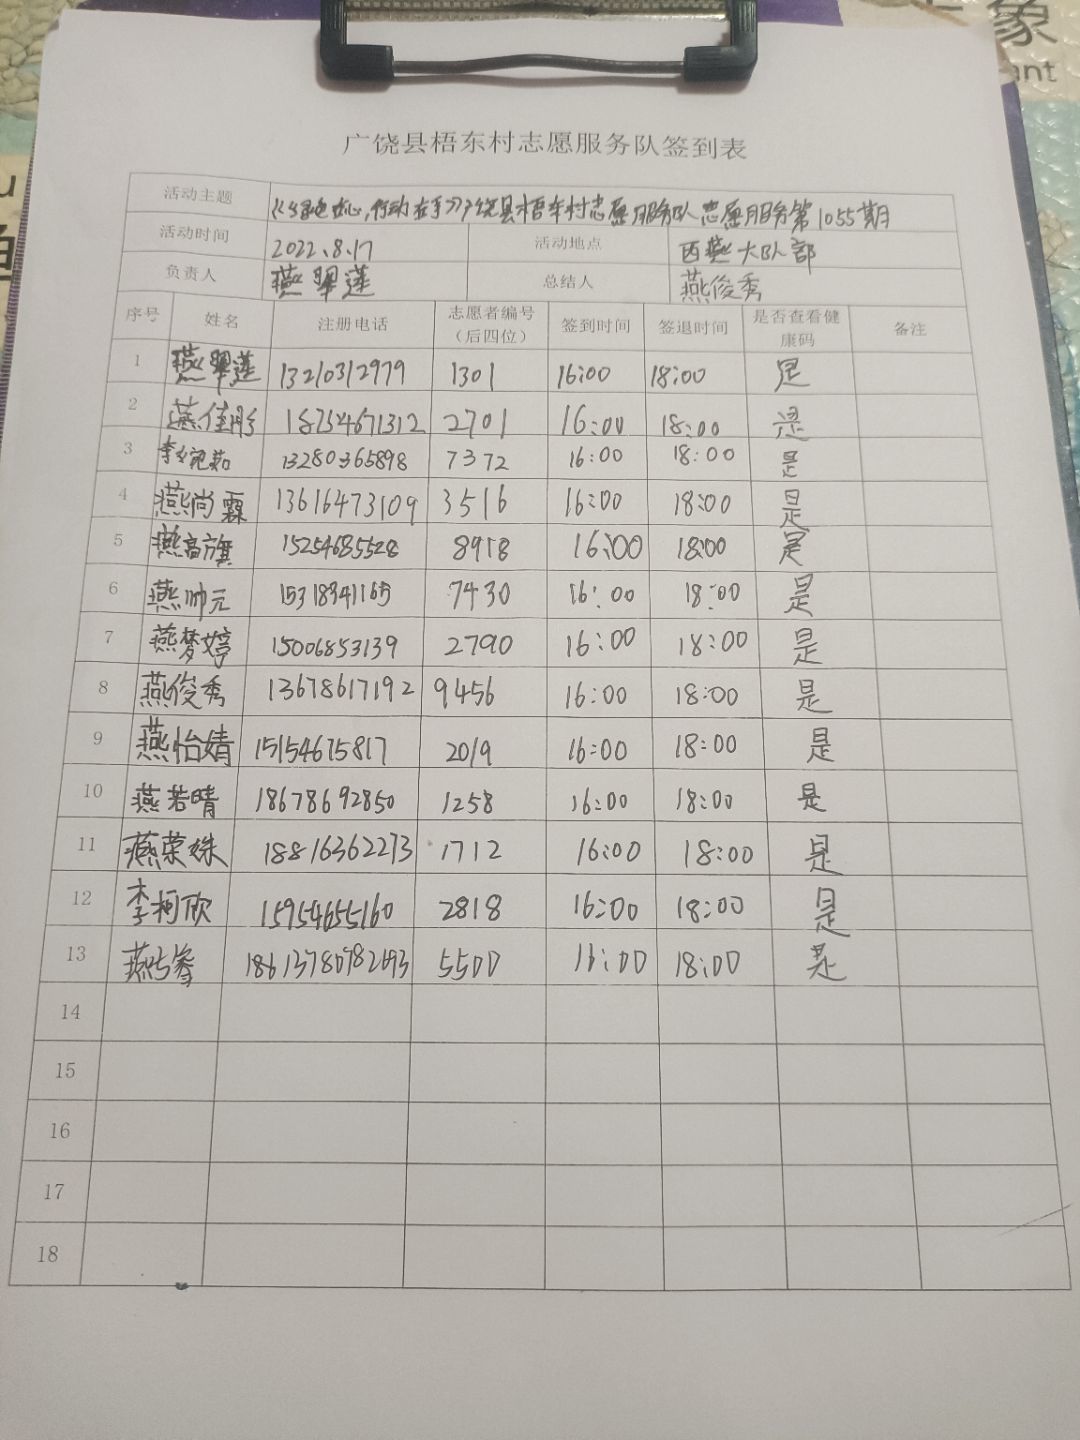 象
ant
广饶县梧东村志愿服务队签到表
活动主题 《绿色在心,行动在手》广饶县梧东村志愿服务队志愿服务第1055期
活动时间 2022.8.17 活动地点 西燕大队部
负责人 燕翠莲 总结人 燕俊秀
序号 姓名 注册电话 志愿者编号(后四位) 签到时间 签退时间 是否查看健康码 备注
1 燕翠莲 13210312979 1301 16:00 18:00 是
2 燕佳彤 18754671312 2701 16:00 18:00 是
3 13280365898 7372 16:00 18:00 是
4 燕尚霖 13616473109 3516 16:00 18:00 是
5 燕高旗 15254685528 8918 16:00 18:00 是
6 燕帅元 15318341165 7430 16:00 18:00 是
7 燕梦婷 15006853139 2790 16:00 18:00 是
8 燕俊秀 13678617192 9456 16:00 18:00 是
9 燕怡婧 15154675817 2019 16:00 18:00 是
10 燕若晴 18678692850 1258 16:00 18:00 是
11 燕荣姝 18816362273 1712 16:00 18:00 是
12 李柯欣 15954655160 2818 16:00 18:00 是
13 5500 16:00 18:00 是
14
15
16
17
18